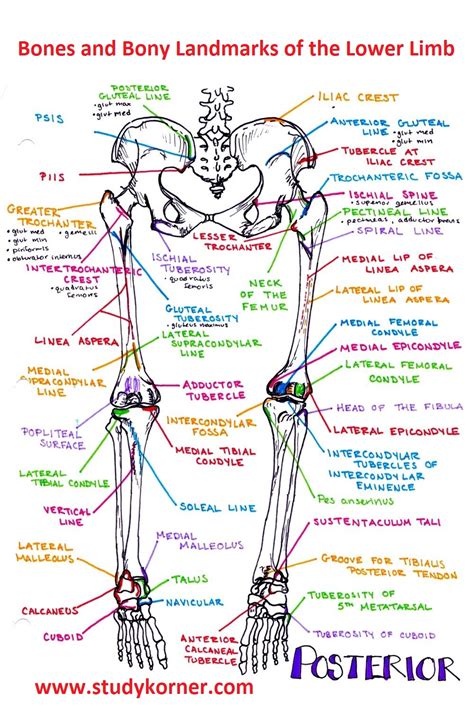 Bones and Bony Landmarks of the Lower Limb
POSTERIOR
GLUTEAL LINE
• glut max
• glut med
PSIS
PIIS
GREATER
TROCHANTER
• glut med
• gemelli
• glut min
• piriformis
• obturator internus
INTERTROCHANTERIC
CREST
• quadratus
femoris
LINEA ASPERA
MEDIAL
SUPRACONDYLAR
LINE
POPLITEAL
SURFACE
LATERAL
TIBIAL CONDYLE
VERTICAL
LINE
LATERAL
MALLEOLUS
CALCANEUS
CUBOID
LESSER
TROCHANTER
ISCHIAL
TUBEROSITY
• quadratus
femoris
GLUTEAL
TUBEROSITY
• gluteus maximus
LATERAL
SUPRACONDYLAR
LINE
ADDUCTOR
TUBERCLE
INTERCONDYLAR
FOSSA
MEDIAL TIBIAL
CONDYLE
SOLEAL LINE
MEDIAL
MALLEOLUS
TALUS
NAVICULAR
ANTERIOR
CALCANEAL
TUBERCLE
ILIAC CREST
ANTERIOR GLUTEAL
LINE
• glut med
• glut min
TUBERCLE AT
ILIAC CREST
TROCHANTERIC FOSSA
ISCHIAL SPINE
• superior gemellus
PECTINEAL LINE
• pectineus, adductor brevis
SPIRAL LINE
NECK
OF THE
FEMUR
MEDIAL LIP OF
LINEA ASPERA
LATERAL LIP OF
LINEA ASPERA
MEDIAL FEMORAL
CONDYLE
MEDIAL EPICONDYLE
LATERAL FEMORAL
CONDYLE
HEAD OF THE FIBULA
LATERAL EPICONDYLE
INTERCONDYLAR
TUBERCLES OF
INTERCONDYLAR
EMINENCE
Pes anserinus
SUSTENTACULUM TALI
GROOVE FOR TIBIALIS
POSTERIOR TENDON
TUBEROSITY OF
5TH METATARSAL
TUBEROSITY OF CUBOID
POSTERIOR
www.studykorner.com